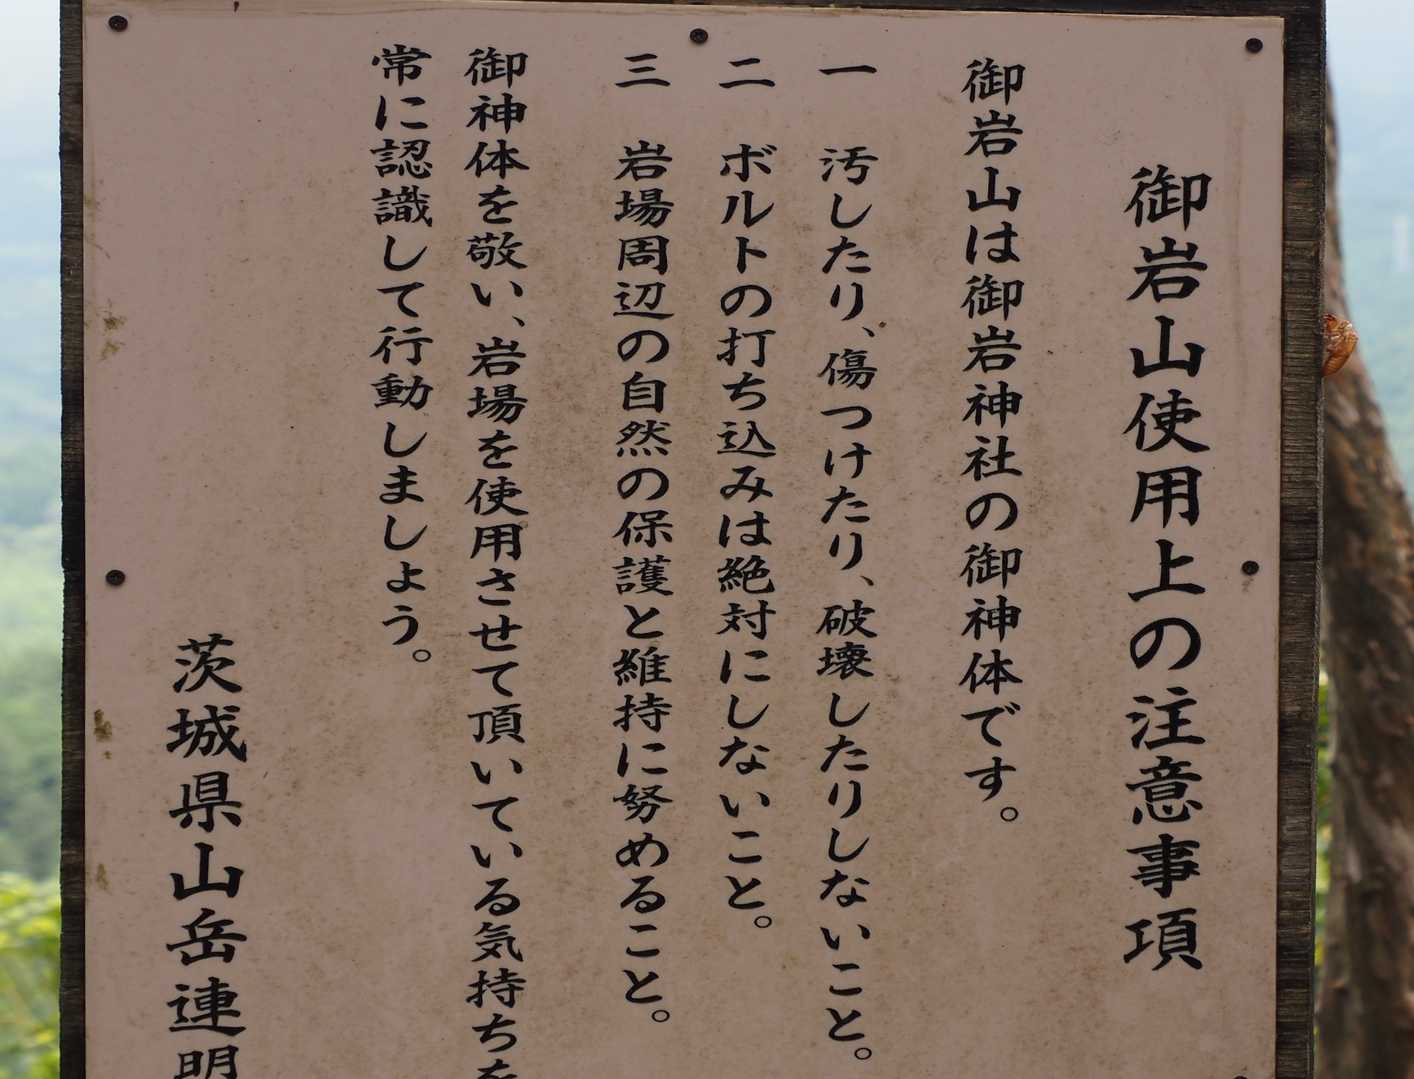 御岩山使用上の注意事項
御岩山は御岩神社の御神体です。
一 汚したり、傷つけたり、破壊したりしないこと。
二 ボルトの打ち込みは絶対にしないこと。
三 岩場周辺の自然の保護と維持に努めること。
御神体を敬い、岩場を使用させて頂いている気持ちを
常に認識して行動しましょう。
茨城県山岳連